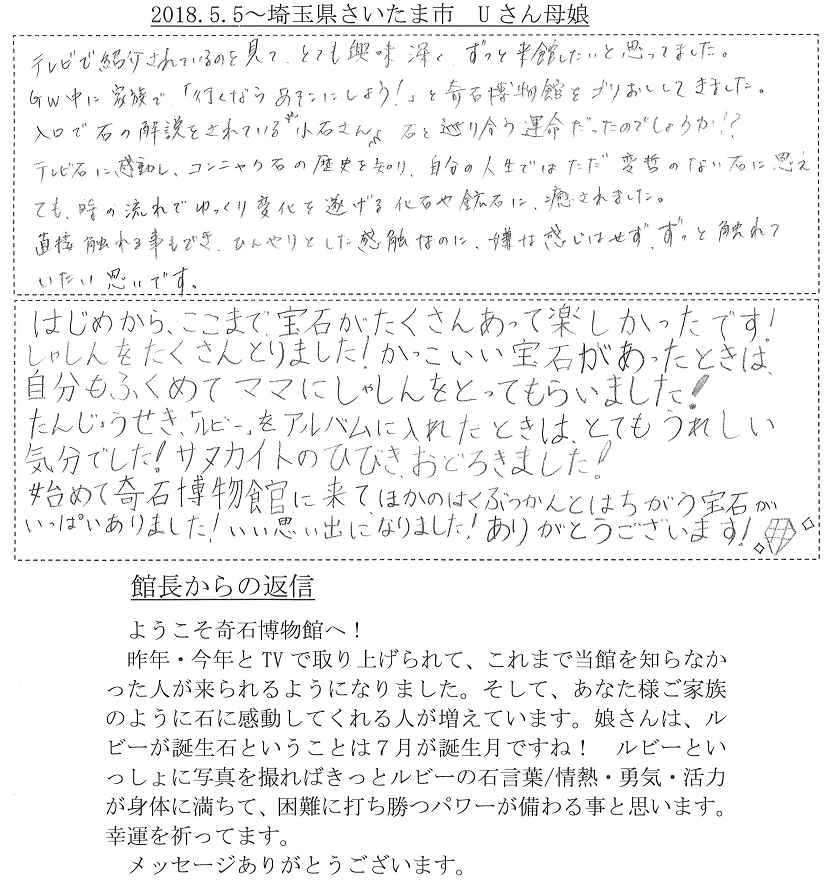 2018.5.5～埼玉県さいたま市　Uさん母娘
テレビで紹介されているのを見て、とても興味深く、ずっと来館したいと思ってました。
GW中に家族で「行くならあそこにしよう！」と奇石博物館をゴリおししてきました。
入口で石の解説をされている"小石さん" 石と巡り合う運命だったのでしょうか!?
テレビ石に感動し、コンニャク石の歴史を知り、自分の人生ではただ変哲のない石に思え
ても、時の流れでゆっくり変化を遂げる化石や鉱石に、癒されました。
直接触れる事もでき、ひんやりとした感触なのに、嫌な感じはせず、ずっと触れて
いたい思いです。
はじめから、ここまで宝石がたくさんあって楽しかったです！
しゃしんをたくさんとりました！かっこいい宝石があったときは、
自分もふくめてママにしゃしんをとってもらいました！
たんじょうせき、「ルビー」をアルバムに入れたときは、とてもうれしい
気分でした！サヌカイトのひびき、おどろきました！
始めて奇石博物館に来て、ほかのはくぶつかんとはちがう宝石が
いっぱいありました！いい思い出になりました！ありがとうございます！
館長からの返信
ようこそ奇石博物館へ！
昨年・今年とTVで取り上げられて、これまで当館を知らなか
った人が来られるようになりました。そして、あなた様ご家族
のように石に感動してくれる人が増えています。娘さんは、ル
ビーが誕生石ということは７月が誕生月ですね！　ルビーとい
っしょに写真を撮ればきっとルビーの石言葉/情熱・勇気・活力
が身体に満ちて、困難に打ち勝つパワーが備わる事と思います。
幸運を祈ってます。
メッセージありがとうございます。